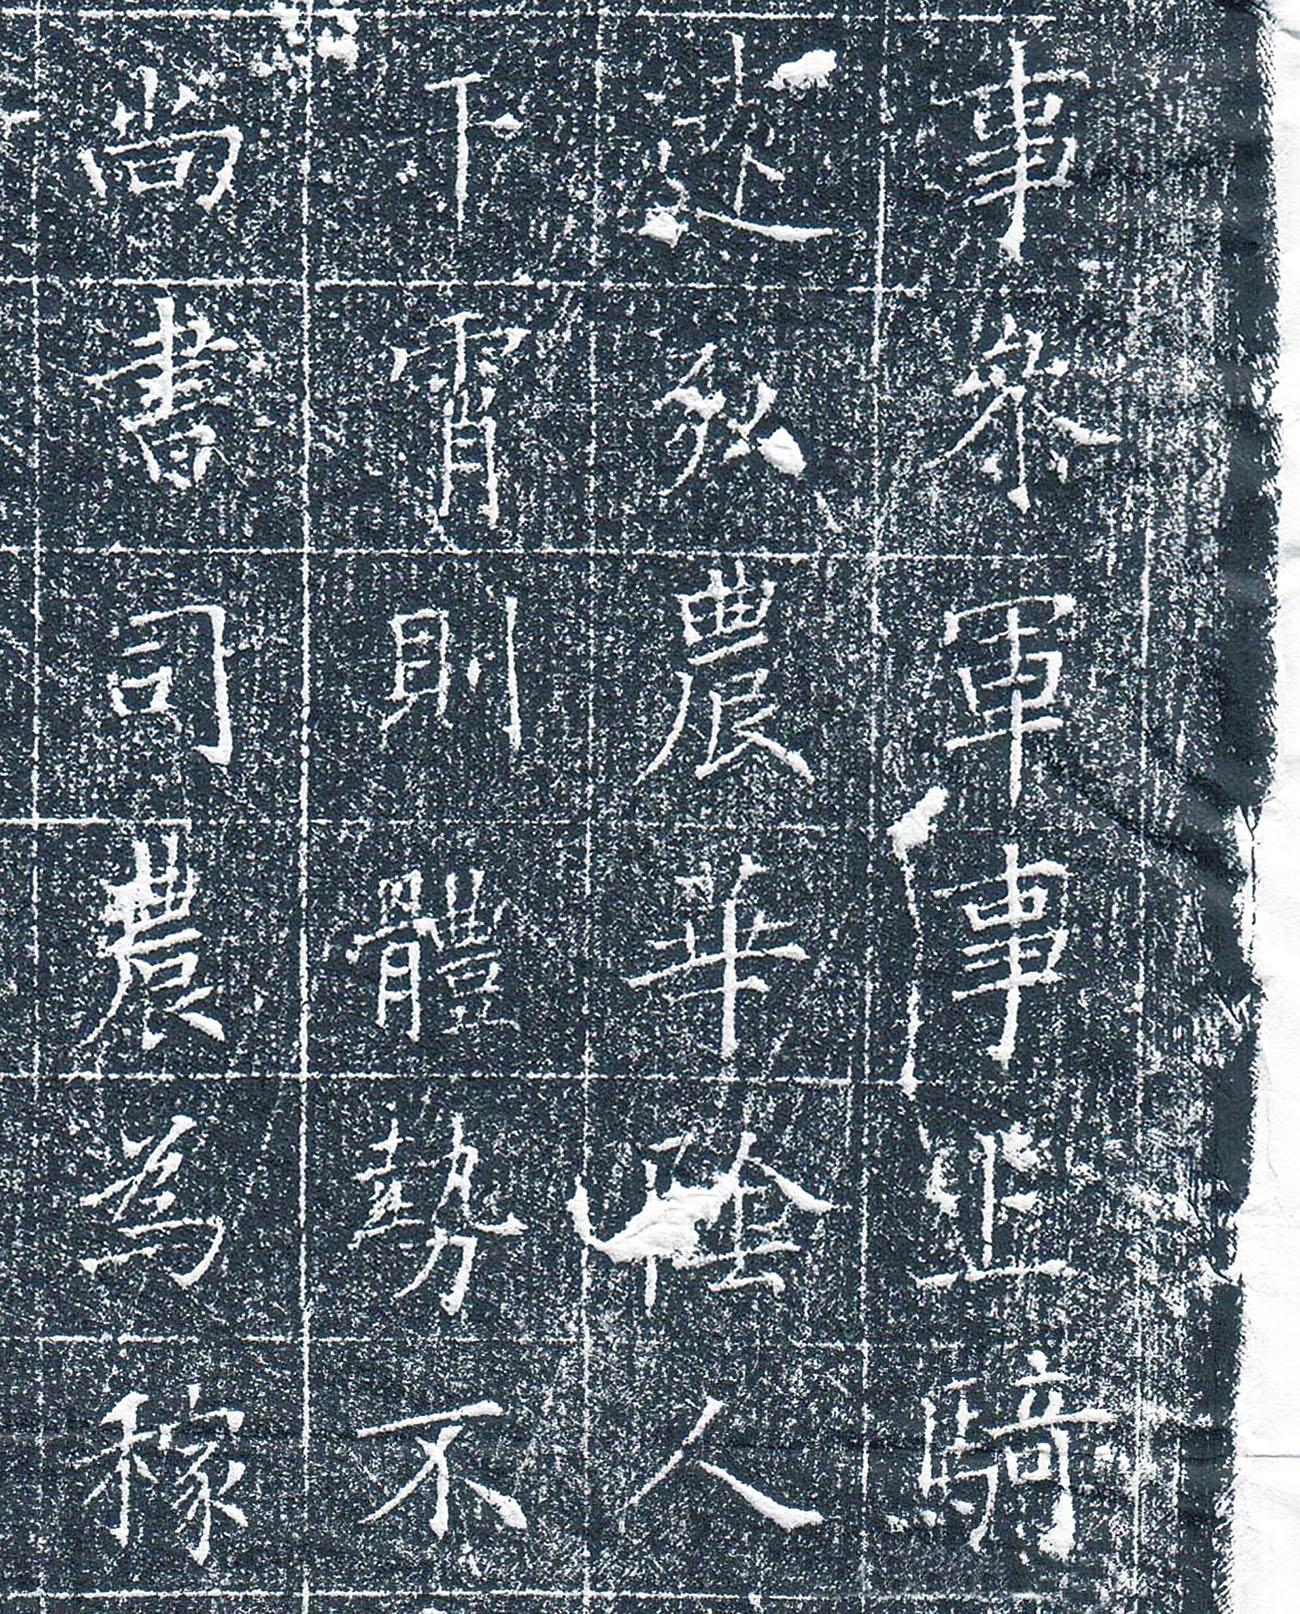 事叅軍事上騎
述弘農華陰人
下霄則體勢不
尚書司農為稼